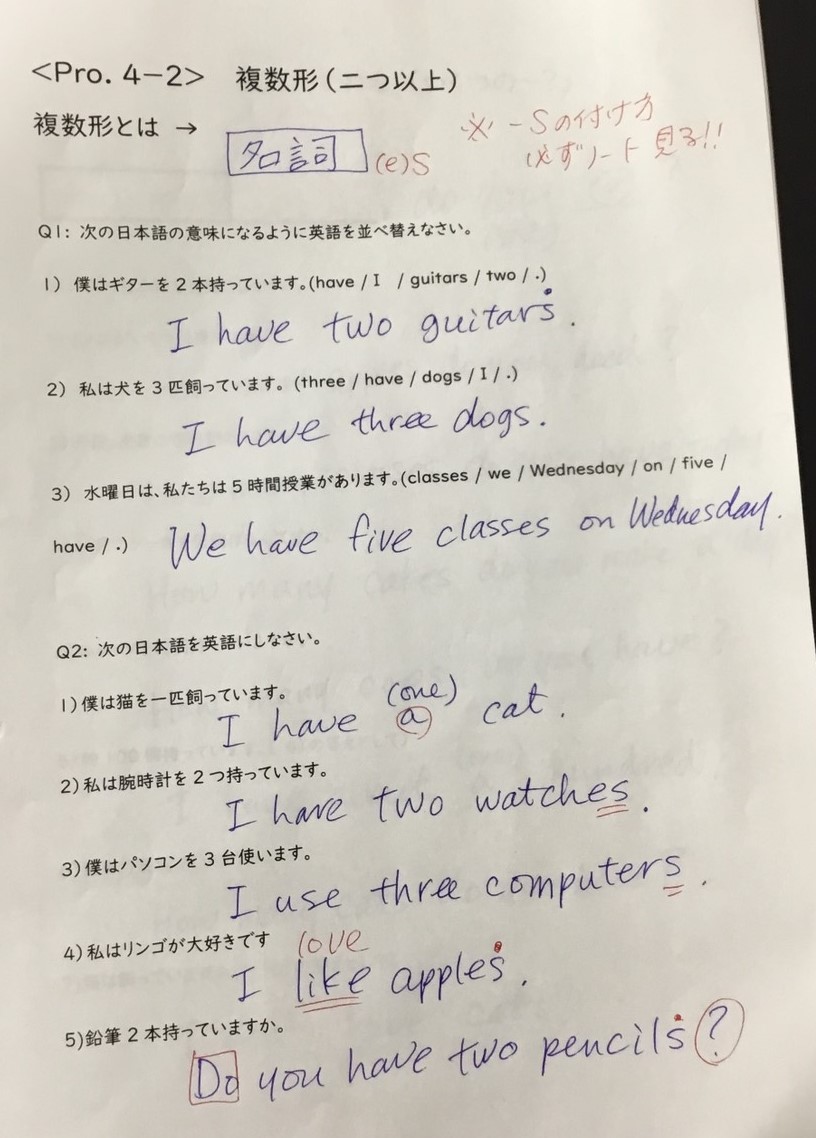 <Pro. 4−2> 複数形(二つ以上)
複数形とは → 名詞 (e)s
※ −sの付け方
必ずノート見る!!
Q1: 次の日本語の意味になるように英語を並べ替えなさい。
1) 僕はギターを2本持っています。(have / I / guitars / two / .)
I have two guitars.
2) 私は犬を3匹飼っています。(three / have / dogs / I / .)
I have three dogs.
3) 水曜日は、私たちは5時間授業があります。(classes / we / Wednesday / on / five /
have / .) We have five classes on Wednesday.
Q2: 次の日本語を英語にしなさい。
1)僕は猫を一匹飼っています。
(one)
I have a cat.
2)私は腕時計を2つ持っています。
I have two watches.
3)僕はパソコンを3台使います。
I use three computers.
4)私はリンゴが大好きです love
I like apples.
5)鉛筆2本持っていますか。
Do you have two pencils?